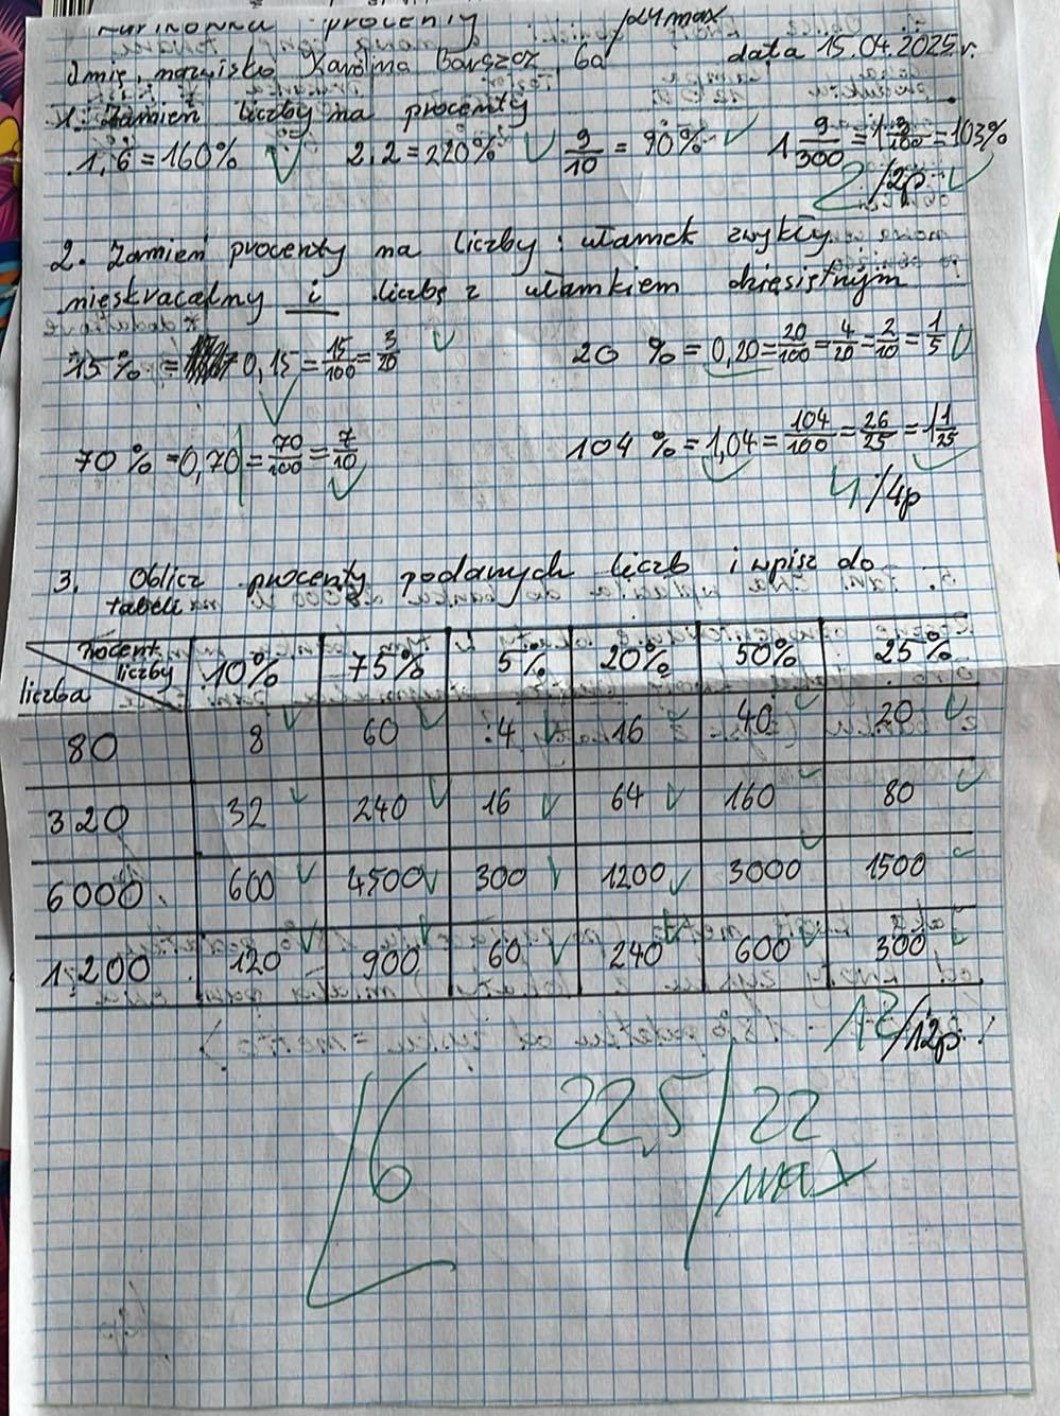 procenty /24 max
Imię, nazwisko Karolina Barszcz 6a data 15.04.2025 r.
1. Zamień liczby na procenty
1,6 = 160% 2,2 = 220% 9/10 = 90% 1 9/300 = 1 3/100 = 103%
2/2p
2. Zamień procenty na liczby: ułamek zwykły
nieskracalny i liczbę z ułamkiem dziesiętnym
15% = 0,15 = 15/100 = 3/20 20% = 0,20 = 20/100 = 4/20 = 2/10 = 1/5
70% = 0,70 = 70/100 = 7/10 104% = 1,04 = 104/100 = 26/25 = 1 1/25
4/4p
3. Oblicz procenty podanych liczb i wpisz do
tabeli
procent liczby
liczba 10% 75% 5% 20% 50% 25%
80 8 60 4 16 40 20
320 32 240 16 64 160 80
6000 600 4500 300 1200 3000 1500
1200 120 900 60 240 600 300
12/12p
6 22,5/22
max